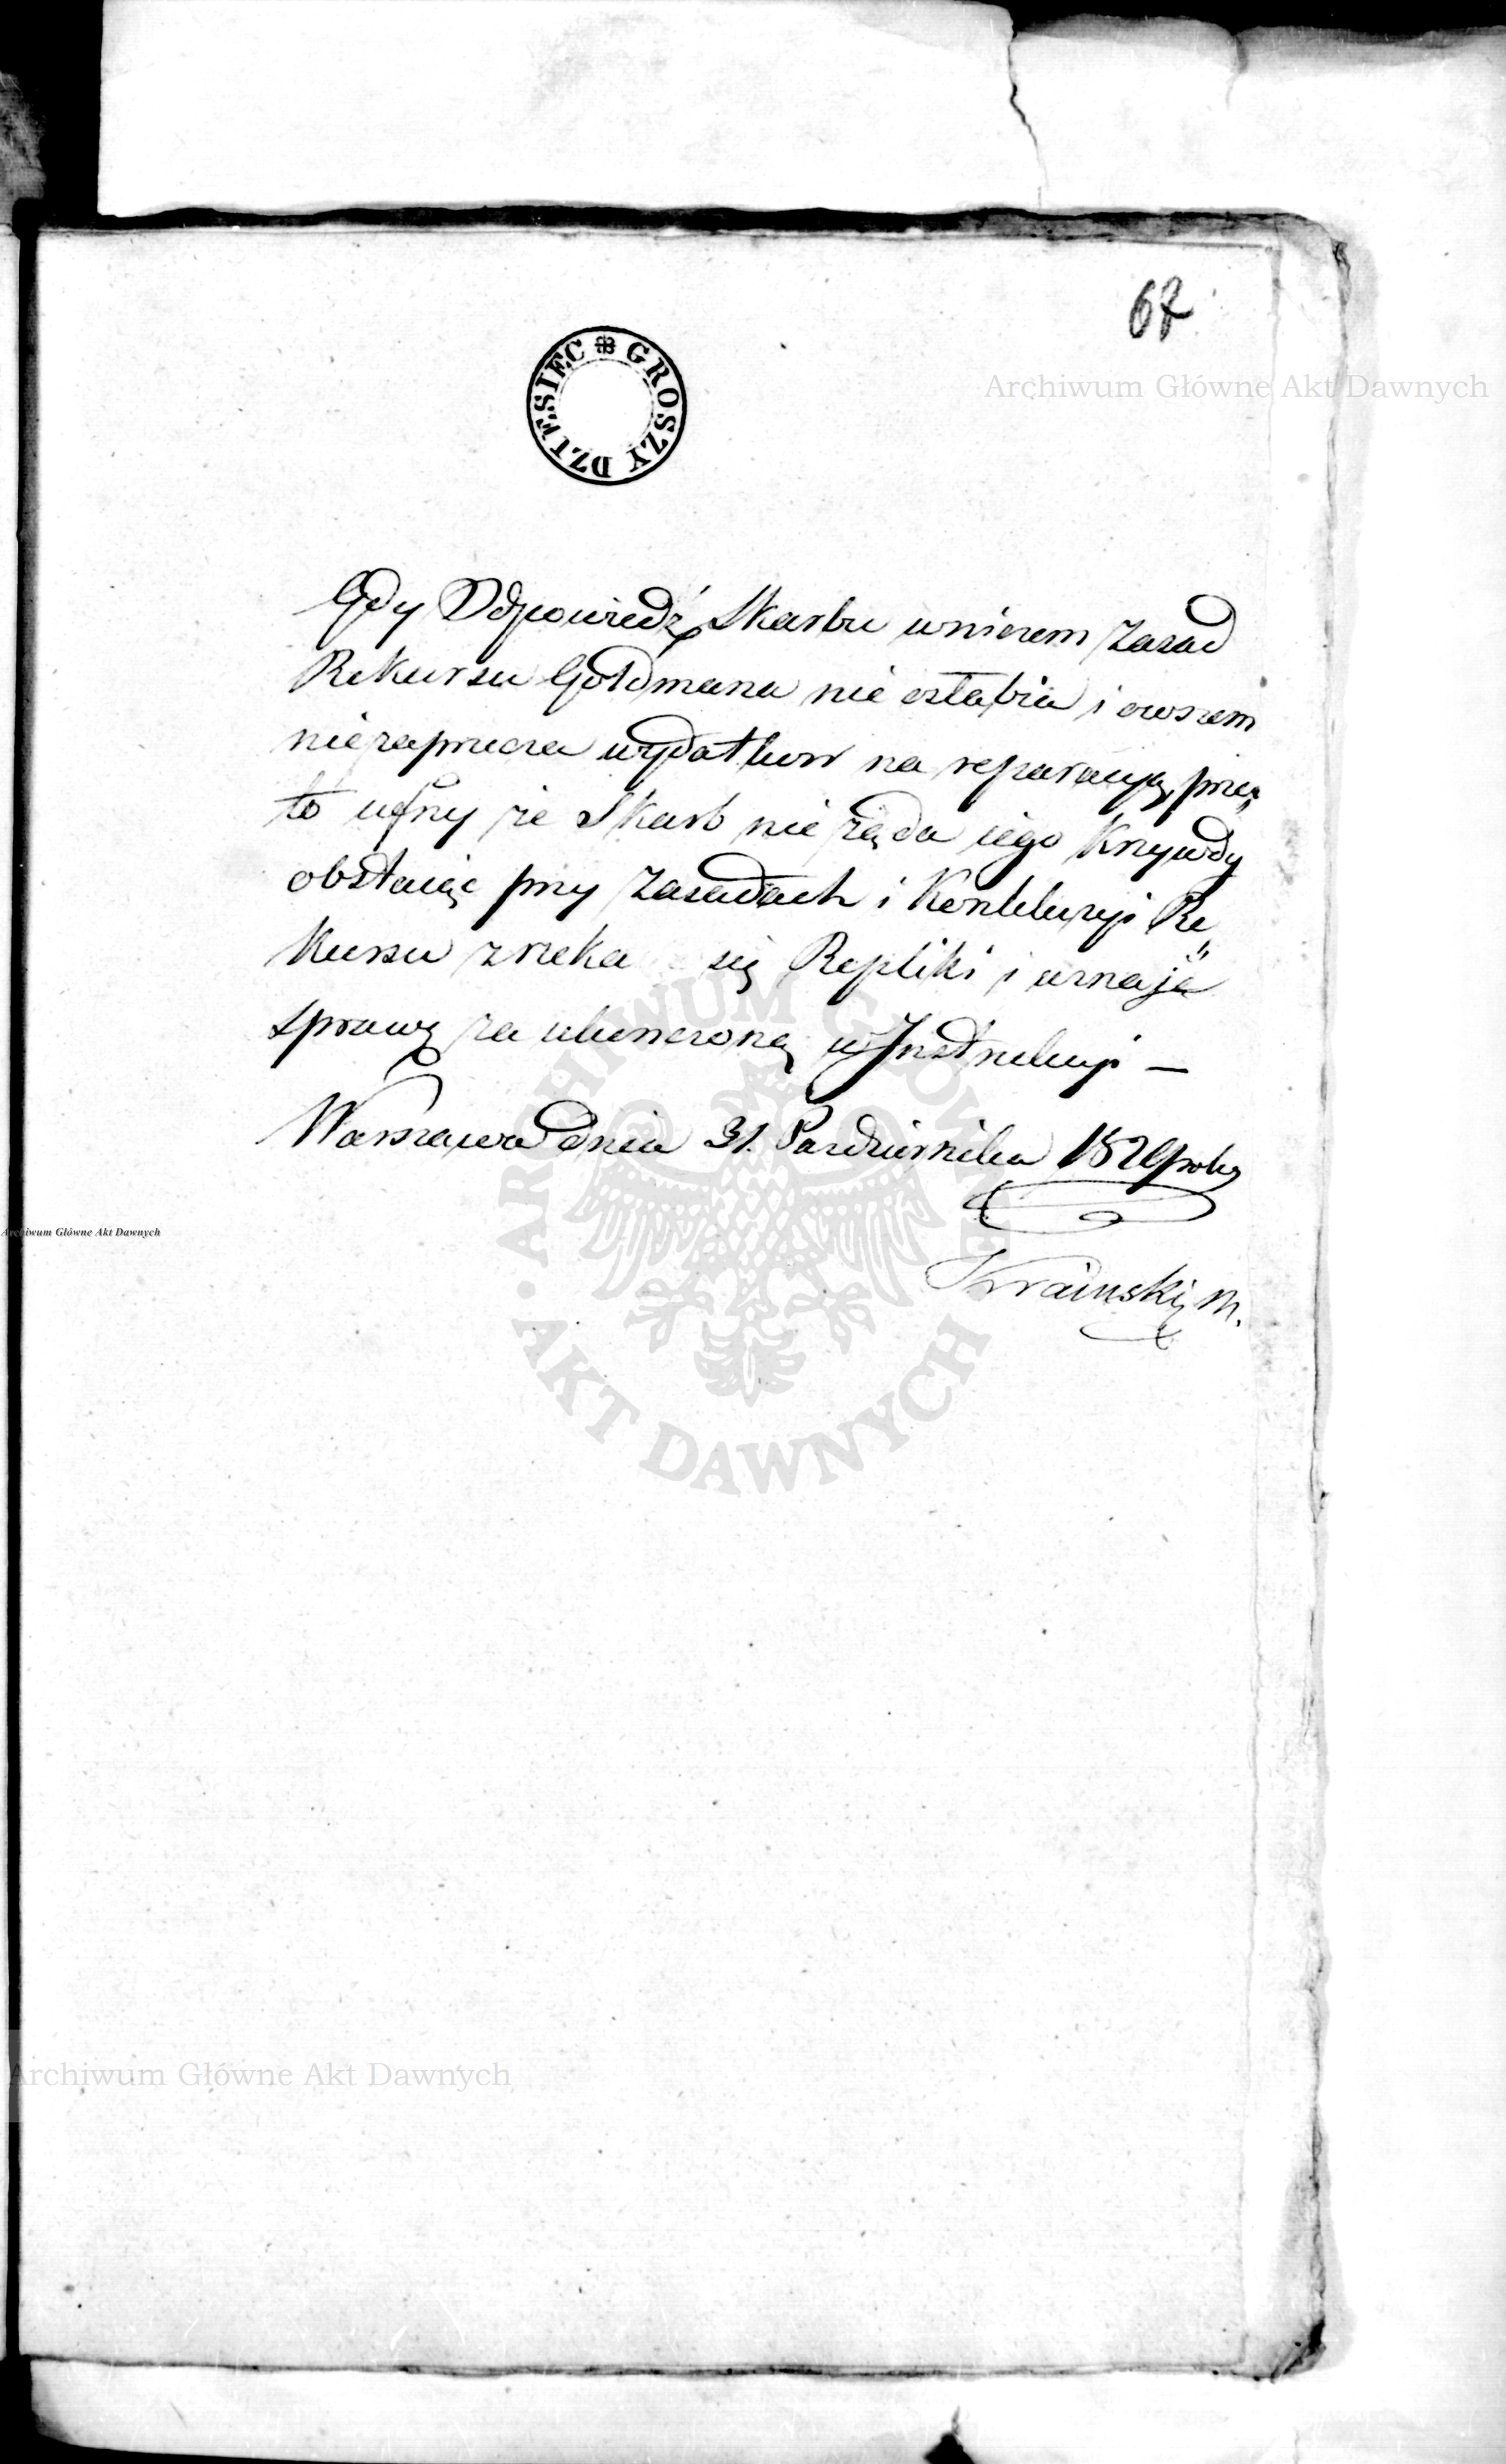 67
Archiwum Główne Akt Dawnych
GROSZY DZIESIEC
Gdy Odpowiedź Skarbu w niczem zasad
Rekursu Goldmana nie osłabia i owszem
niezaprzecza wydatkow na reparacyą, prze„
to ufny że Skarb nie żąda iego Krzywdy
obstaiąc przy Zasadach i Konkluzyi Re„
kursu zrzeka się Repliki i uznaje
sprawę za ukonczoną w Instrukcyi —
Warszawa dnia 31. Pazdziernika 1829 roku
Krainski m.
ARCHIWUM GŁÓWNE • AKT DAWNYCH •
Archiwum Główne Akt Dawnych
Archiwum Główne Akt Dawnych